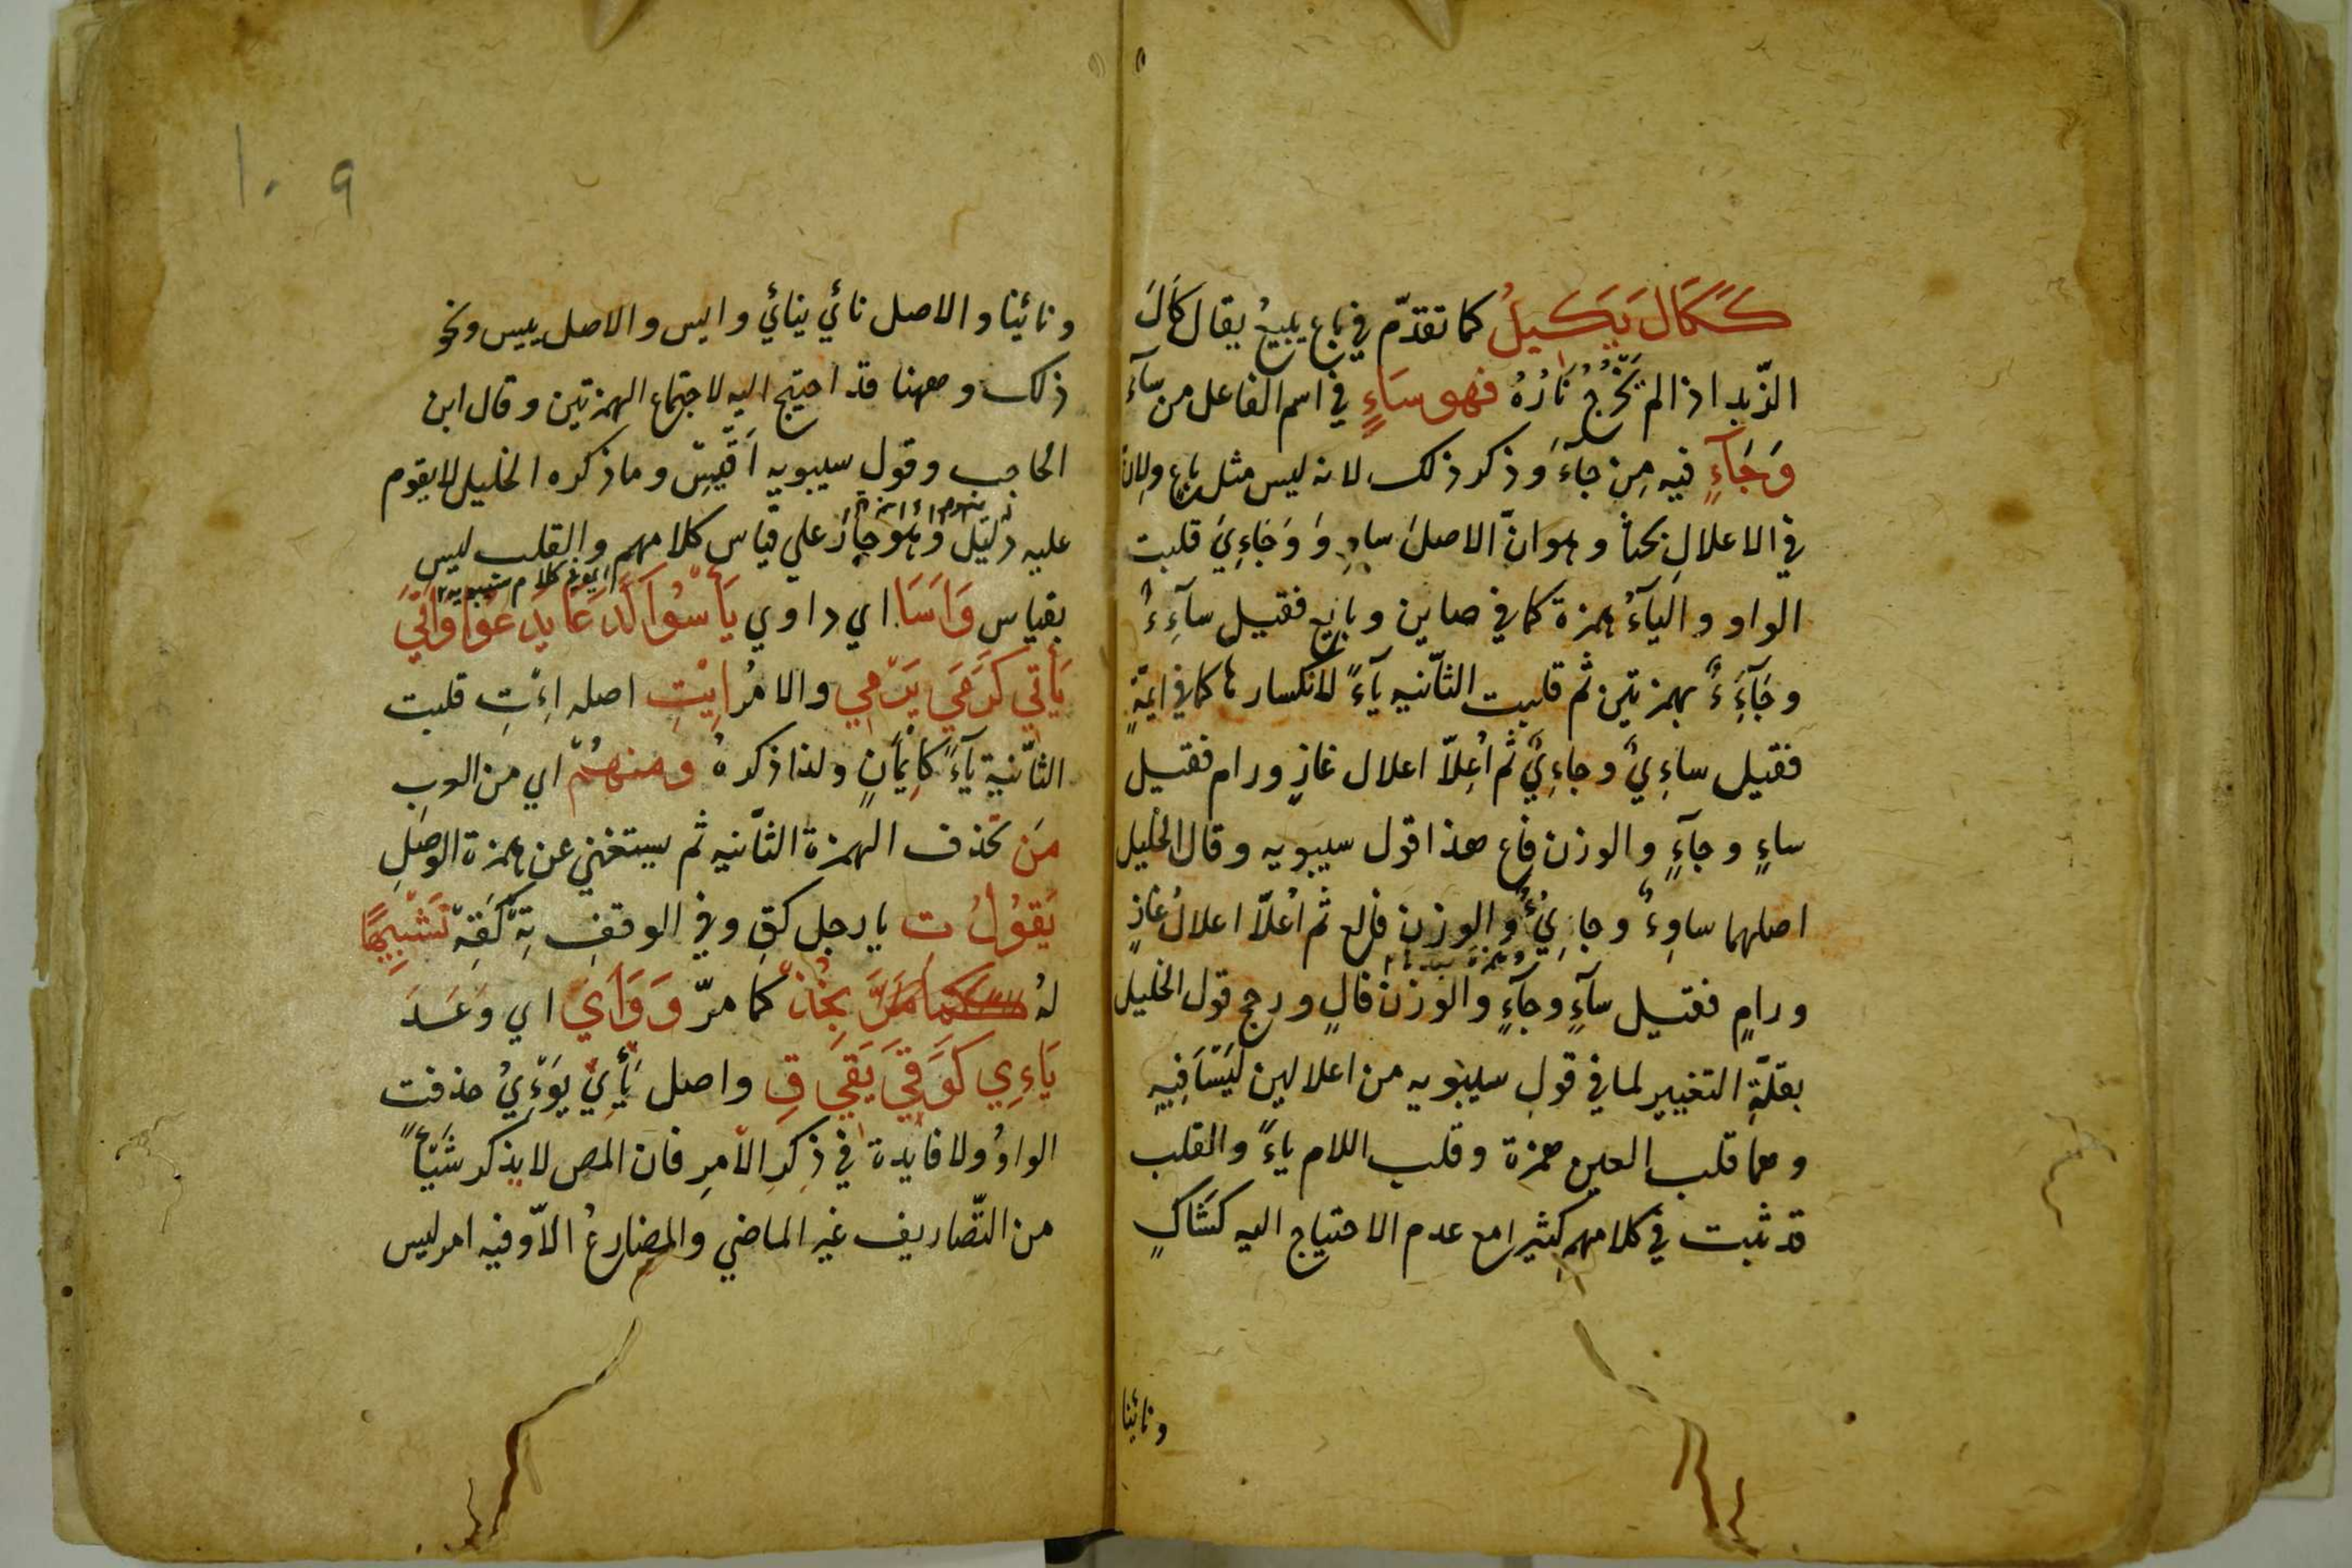 كَكَالَ يَكِيلُ كما تقدّم في باع يبيعُ يقال كَالَ
الزّند اذا لم تَخْرُجْ نَارُهُ فهو سَاءٍ في اسم الفاعل من سآءَ
وَجَآءٍ فيه مِن جآءَ وذكر ذلك لانه ليس مثل باع ولان
في الاعلالِ بحثاً وهو انّ الاصلَ ساوِءٌ وَجَاءِيٌ قلبت
الواو والياءُ همزة كما في صاين وبايع فقيل سآءِءٌ
وجَآءِءٌ بهمزتين ثم قلبت الثّانيه يآءً لانكسار ما كما في ايمّةٍ
فقيل ساءِيٌ وجاءِيٌ ثم اُعِلّا اعلال غازٍ ورام فقيل
ساءٍ وجآءٍ والوزن فاع هذا قول سيبويه وقال الخليل
اصلهما ساوِءٌ وجايِءٌ والوزن فالع ثم اُعلّا اعلالُ غازٍ
ورامٍ فقيل سآءٍ وجآءٍ والوزن فالٍ ورجح قول الخليل
بقلّةِ التغيير لما في قول سيبويه من اعلالين لَيْسَا فِيهِ
وهما قلب العين همزة وقلب اللام ياءً والقلب
قد ثبت في كلامهم كثيرا مع عدم الاحتياج اليه كشَاكٍ
ونائينا
١٠ ٩
ونائينا والاصل نائي ينائي وايس والاصل ييس ونحو
ذلك وههنا قد احتيج اليه لاجتماع الهمزتين وقال ابن
الحاجب وقول سيبويه اَقْيَسُ وما ذكره الخليل لا يقوم
عليه دليل وهو جارٍ علي قياس كلامهم والقلب ليس
بقياس وَاَسَا اي داوي يَأْسُوا كَدَعَا يَدْعُوا وَاَتَيَ
يَأْتِي كَرَمَيَ يَرْمِي والامرُ اِيْتِ اصله اءِْتِ قلبت
الثّانية يآءً كاِيْمَانٍ ولذا ذكرهُ ومنهُمْ اي من العرب
مَن تحذف الهمزة الثّانيه ثم يستغني عن همزة الوصلِ
يَقُوْلُ تِ يا رجل كقِ وفي الوقف تِهْ كَقِهْ تَشْبِيهًا
لهُ بِخُذْ كما مرّ وَوَاَيَ اي وَعَدَ
يَاءِي كَوَقَيَ يَقِي قِ واصل يَأِي يَوْءِيُ حذفت
الواوُ ولا فايدة في ذِكرِ الامرِ فان المص لا يذكر شَيْأً
من التّصاريف غير الماضي والمضارعُ الّا وفيه امر ليس